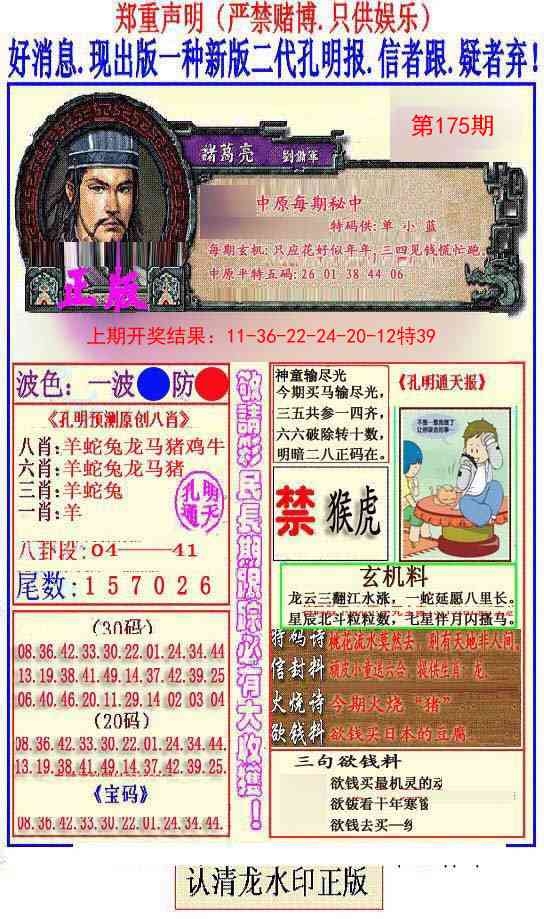 郑重声明（严禁赌博.只供娱乐）
好消息.现出版一种新版二代孔明报.信者跟.疑者弃!
第175期
諸葛亮
劉備軍
中原每期秘中
特码供:单 小 蓝
每期玄机:只应花好似年年,三四见钱慌忙跑.
中原平特五码:26 01 38 44 06
正版
上期开奖结果：11-36-22-24-20-12特39
波色：一波 防
《孔明预测原创八肖》
八肖:羊蛇兔龙马猪鸡牛
六肖:羊蛇兔龙马猪
三肖:羊蛇兔
一肖:羊
孔明
通天
八卦段:04——41
尾数:157026
(30码)
08.36.42.33.30.22.01.24.34.44
13.19.38.41.49.14.37.42.39.25
06.40.46.20.11.29.14 02.03 04
(20码)
08.36.42.33.30.22.01.24.34.44.
13.19.38.41.49.14.37.42.39.25.
《宝码》
08.36.42.33.30.22.01.24.34.44.
敬請彩民長期跟踪必有大收獲！
神童输尽光
今期买马输尽光，
三五共参一四齐，
六六破除转十数，
明暗二八正码在。
《孔明通天报》
禁 猴虎
玄机料
龙云三翻江水涨，一蛇延愿八里长。
星辰北斗粒粒数，七星伴月闪骚乌。
特码诗 桃花流水窅然去，别有天地非人间
信封料 顽皮小童追六合，提供生肖：龙
火烧诗 今期火烧“猪”
欲钱料 欲钱买日本的豆腐
三句欲钱料
欲钱买最机灵的动
欲钱看十年寒窗
欲钱去买一
认清龙水印正版